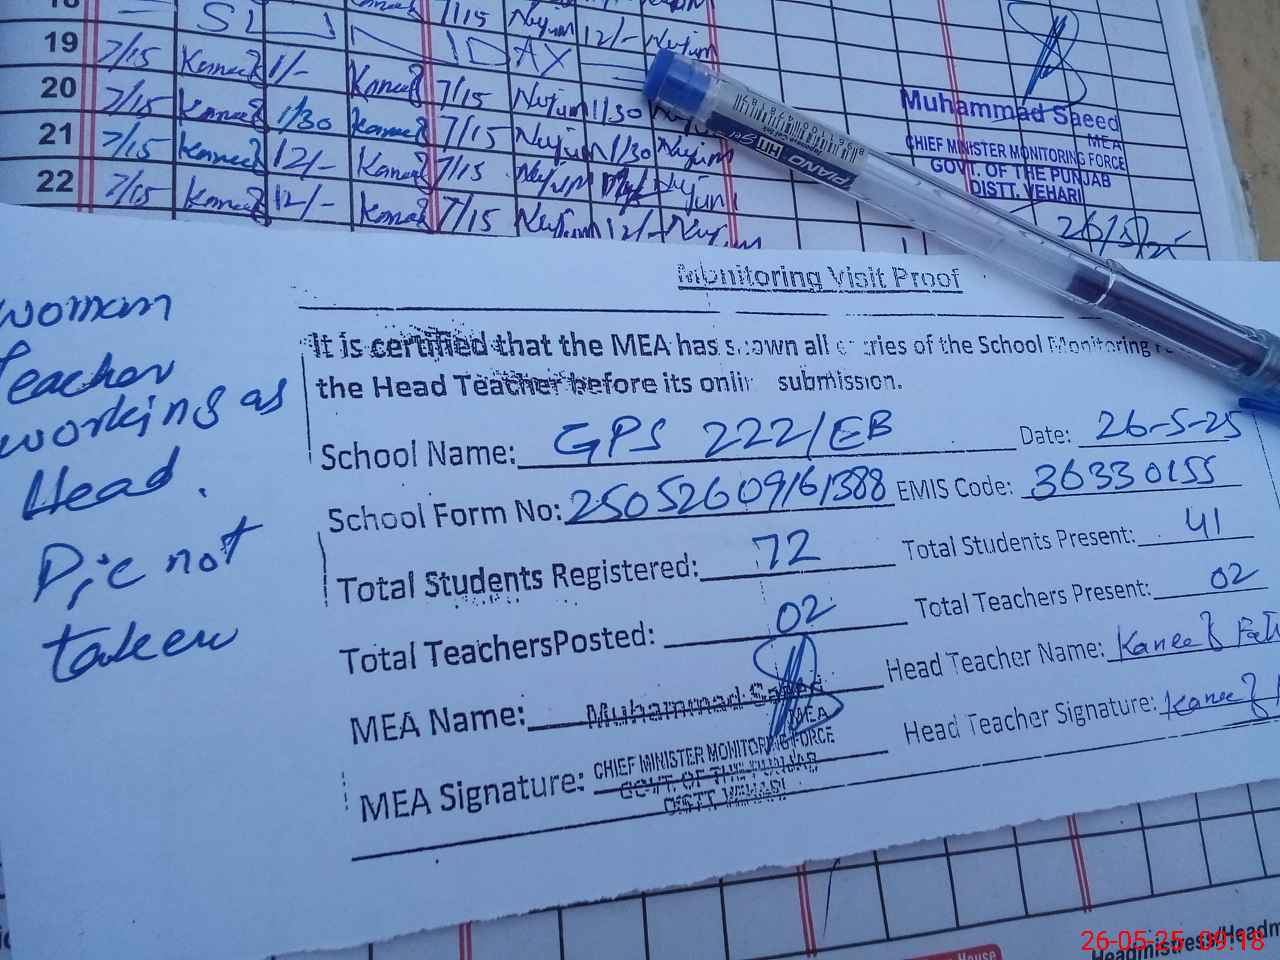 19 7/15 Kaneez 1/- Kaneez 7/15
20 7/15 Kaneez 1/30 Kaneez 7/15 1/30
21 7/15 Kaneez 12/- Kaneez 7/15 1/30
22 7/15 Kaneez 12/- Kaneez 7/15 12/-
Muhammad Saeed
MEA
CHIEF MINISTER MONITORING FORCE
GOVT. OF THE PUNJAB
DISTT. VEHARI
26/5/25
PIANO
Monitoring Visit Proof
It is certified that the MEA has shown all entries of the School Monitoring
the Head Teacher before its online submission.
School Name: GPS 222/EB Date: 26-5-25
School Form No: 25052609161388 EMIS Code: 36330155
Total Students Registered: 72 Total Students Present: 41
Total TeachersPosted: 02 Total Teachers Present: 02
MEA Name: Muhammad Saeed Head Teacher Name: Kaneez
MEA
MEA Signature: CHIEF MINISTER MONITORING FORCE Head Teacher Signature: Kaneez
GOVT. OF THE PUNJAB
DISTT. VEHARI
woman
Teacher
working as
Head.
Pic not
taken
House
Headmistress/Headm
26-05-25 09:18